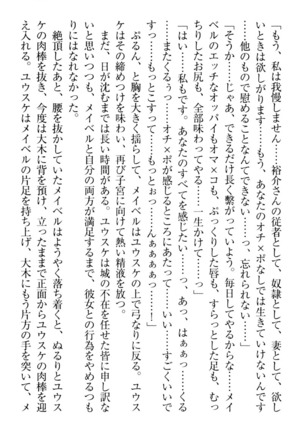 「もう、私は我慢しません……裕介さんの従者として、奴隷として、妻として、欲し
いときは欲しがります……もう、あなたのオチ×ポなしでは生きていけないんです
……他のもので慰めることなんてできない……っ、忘れられない……」
「そうか……じゃあ、できるだけ長く繋がっていよう。毎日してやるからな……メイ
ベルのエッチなオッパイもオマ×コも、ぷっくりした唇も、すらっとした足も、むっ
ちりしたお尻も、全部味わってやる……生かけて……っ」
「はい……私もです。あなたのすべてを感じたい……っ、あっ、はぁっ……くるっ
……またくるぅっ……オチ×ポが感じるところにあたって……いい……すごくいいで
すっ……もっとこすって……もっとぉっ……んぁぁぁぁぁっ……！」
　ぷるん、と胸を大きく揺らして、メイベルはユウスケの上で弓なりに反る。ユウス
ケはその締めつけを味わい、再び子宮に向けて熱い精液を放つ。
　まだ、日が沈むまでは長い時間がある。ユウスケは城の不在を任せた皆に申し訳な
いと思いつつも、メイベルと自分の両方が満足するまで、彼女との行為をやめる気
にはなれなかった。
　絶頂したあと、腰を抜かしていたメイベルはようやく落ち着くと、ぬるりとユウス
ケの肉棒を抜き、今度は大木に背を預け、立ったままで正面からユウスケの肉棒を迎
え入れる。ユウスケはメイベルの片足を持ち上げ、大木にもう片方の手を突いて、メ